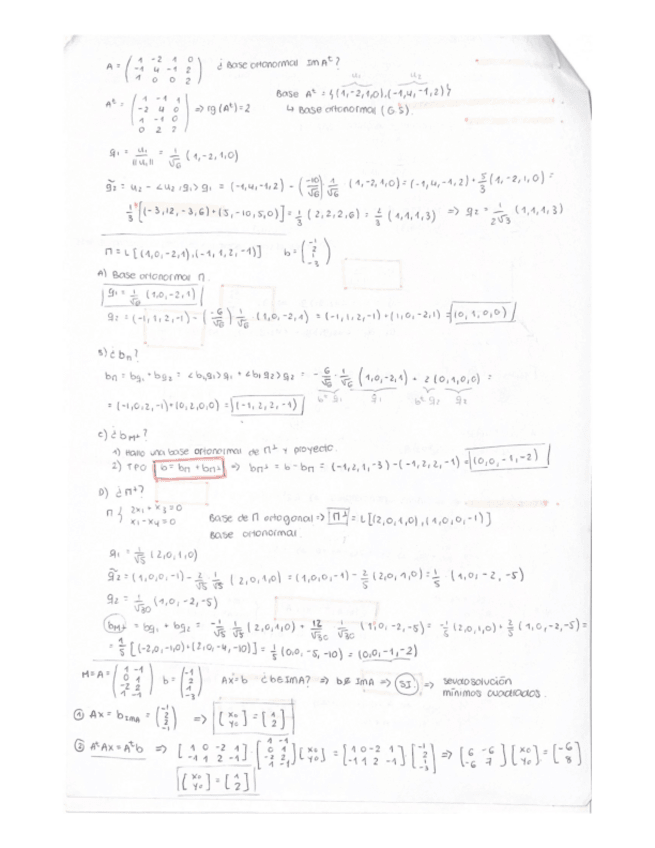 A = ( 1 -2 1 0 / -1 4 -1 2 / 1 0 0 2 ) ¿ Base ortonormal Im Aᵗ?
Base Aᵗ = { (1,-2,1,0), (-1,4,-1,2) } u₁ u₂
Aᵗ = ( 1 -1 1 / -2 4 0 / 1 -1 0 / 0 2 2 ) => rg(Aᵗ)=2 ↳ Base ortonormal (G.S).
g₁ = u₁/||u₁|| = 1/√6 (1,-2,1,0)
g̃₂ = u₂ - <u₂,g₁> g₁ = (-1,4,-1,2) - (-10/√6) 1/√6 (1,-2,1,0) = (-1,4,-1,2) + 5/3 (1,-2,1,0) =
1/3 [(-3,12,-3,6) + (5,-10,5,0)] = 1/3 (2,2,2,6) = 2/3 (1,1,1,3) => g₂ = 1/2√3 (1,1,1,3)
π = L[(1,0,-2,1),(-1,1,2,-1)] b = ( -1 / 2 / 1 / -3 )
A) Base ortonormal π.
g₁ = 1/√6 (1,0,-2,1)
g₂ = (-1,1,2,-1) - (-6/√6) 1/√6 (1,0,-2,1) = (-1,1,2,-1) + (1,0,-2,1) = (0,1,0,0)
B) ¿bπ?
bπ = bg₁ + bg₂ = <b,g₁> g₁ + <b,g₂> g₂ = - 6/√6 · 1/√6 (1,0,-2,1) + 2 (0,1,0,0) =
bᵗ g₁ g₁ bᵗ g₂ g₂
= (-1,0,2,-1) + (0,2,0,0) = (-1,2,2,-1)
C) ¿bπ⊥?
1) Hallo una base ortonormal de π⊥ y proyecto.
2) TPO b = bπ + bπ⊥ => bπ⊥ = b - bπ = (-1,2,1,-3) - (-1,2,2,-1) = (0,0,-1,-2)
D) ¿π⊥?
π { 2x₁ + x₃ = 0 / x₁ - x₄ = 0 Base de π ortogonal => π⊥ = L[(2,0,1,0),(1,0,0,-1)]
Base ortonormal.
g₁ = 1/√5 (2,0,1,0)
g̃₂ = (1,0,0,-1) - 2/√5 1/√5 (2,0,1,0) = (1,0,0,-1) - 2/5 (2,0,1,0) = 1/5 (1,0,-2,-5)
g₂ = 1/√30 (1,0,-2,-5)
bπ⊥ = bg₁ + bg₂ = -1/√5 1/√5 (2,0,1,0) + 12/√30 1/√30 (1,0,-2,-5) = -1/5 (2,0,1,0) + 2/5 (1,0,-2,-5) =
= 1/5 [(-2,0,-1,0) + (2,0,-4,-10)] = 1/5 (0,0,-5,-10) = (0,0,-1,-2)
M = A = ( 1 -1 / 0 1 / -2 2 / 1 -1 ) b = ( -1 / 2 / 1 / -3 ) Ax = b ¿b ∈ Im A? => b ∉ Im A => SI. => seudosolución
mínimos cuadrados.
① Ax = b Im A = ( -1 / 2 / 2 / -1 ) => [ x₀ / y₀ ] = [ 1 / 2 ]
② AᵗAx = Aᵗb => [ 1 0 -2 1 / -1 1 2 -1 ] · [ 1 -1 / 0 1 / -2 2 / 1 -1 ] [ x₀ / y₀ ] = [ 1 0 -2 1 / -1 1 2 -1 ] [ -1 / 2 / 1 / -3 ] => [ 6 -6 / -6 7 ] [ x₀ / y₀ ] = [ -6 / 8 ]
[ x₀ / y₀ ] = [ 1 / 2 ]